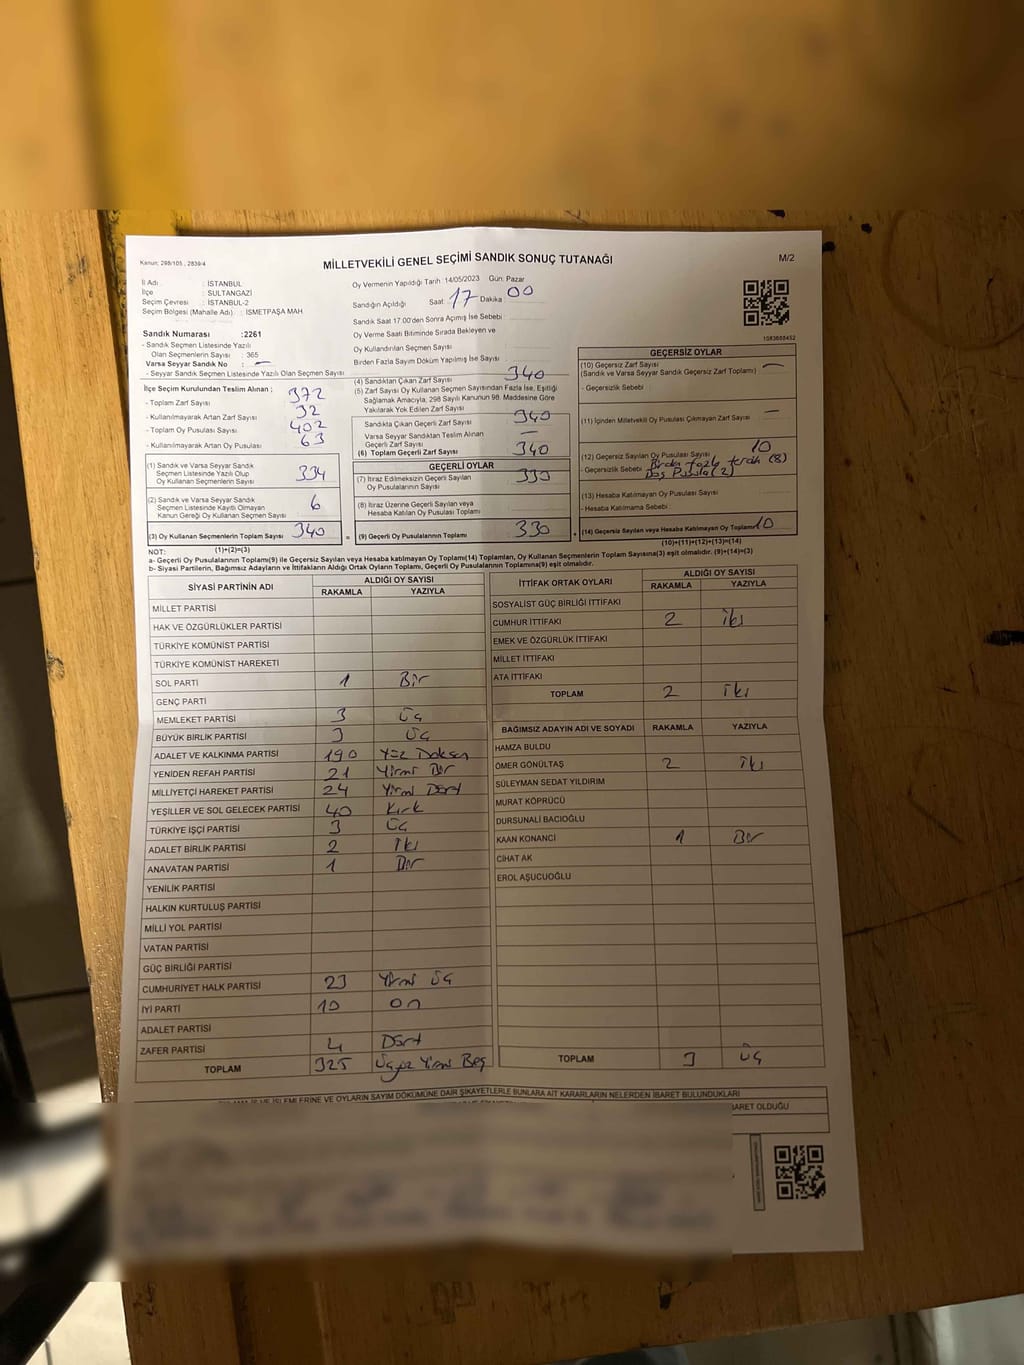 Kanun; 298/105 , 2839/4
MİLLETVEKİLİ GENEL SEÇİMİ SANDIK SONUÇ TUTANAĞI
M/2
İl Adı : İSTANBUL
İlçe : SULTANGAZİ
Seçim Çevresi : İSTANBUL-2
Seçim Bölgesi (Mahalle Adı) : İSMETPAŞA MAH
Oy Vermenin Yapıldığı Tarih 14/05/2023 Gün: Pazar
Sandığın Açıldığı Saat 17 Dakika 00
Sandık Saat 17.00'den Sonra Açımış İse Sebebi :
Oy Verme Saati Bitiminde Sırada Bekleyen ve
Oy Kullandırılan Seçmen Sayısı :
Birden Fazla Sayım Döküm Yapılmış İse Sayısı :
Sandık Numarası :2261
- Sandık Seçmen Listesinde Yazılı
Olan Seçmenlerin Sayısı : 365
Varsa Seyyar Sandık No : —
- Seyyar Sandık Seçmen Listesinde Yazılı Olan Seçmen Sayısı
İlçe Seçim Kurulundan Teslim Alınan :
- Toplam Zarf Sayısı 372
- Kullanılmayarak Artan Zarf Sayısı 32
- Toplam Oy Pusulası Sayısı 402
- Kullanılmayarak Artan Oy Pusulası 63
(1) Sandık ve Varsa Seyyar Sandık
Seçmen Listesinde Yazılı Olup
Oy Kullanan Seçmenlerin Sayısı 334
(2) Sandık ve Varsa Seyyar Sandık
Seçmen Listesinde Kayıtlı Olmayan
Kanun Gereği Oy Kullanan Seçmen Sayısı 6
(3) Oy Kullanan Seçmenlerin Toplam Sayısı 340
(1)+(2)=(3)
(4) Sandıktan Çıkan Zarf Sayısı 340
(5) Zarf Sayısı Oy Kullanan Seçmen Sayısından Fazla İse, Eşitliği
Sağlamak Amacıyla, 298 Sayılı Kanunun 98. Maddesine Göre
Yakılarak Yok Edilen Zarf Sayısı
Sandıkta Çıkan Geçerli Zarf Sayısı 340
Varsa Seyyar Sandıktan Teslim Alınan
Geçerli Zarf Sayısı —
(6) Toplam Geçerli Zarf Sayısı 340
GEÇERLİ OYLAR
(7) İtiraz Edilmeksizin Geçerli Sayılan
Oy Pusulalarının Sayısı 330
(8) İtiraz Üzerine Geçerli Sayılan veya
Hesaba Katılan Oy Pusulası Toplamı
= (9) Geçerli Oy Pusulalarının Toplamı 330
1583868452
GEÇERSİZ OYLAR
(10) Geçersiz Zarf Sayısı
(Sandık ve Varsa Seyyar Sandık Geçersiz Zarf Toplamı) —
- Geçersizlik Sebebi :
(11) İçinden Milletvekili Oy Pusulası Çıkmayan Zarf Sayısı —
(12) Geçersiz Sayılan Oy Pusulası Sayısı 10
- Geçersizlik Sebebi : Birden fazla tercih (8)
Boş Pusula (2)
(13) Hesaba Katılmayan Oy Pusulası Sayısı
- Hesaba Katılmama Sebebi :
+ (14) Geçersiz Sayılan veya Hesaba Katılmayan Oy Toplamı 10
(10)+(11)+(12)+(13)=(14)
NOT:
a- Geçerli Oy Pusulalarının Toplamı(9) ile Geçersiz Sayılan veya Hesaba katılmayan Oy Toplamı(14) Toplamları, Oy Kullanan Seçmenlerin Toplam Sayısına(3) eşit olmalıdır. (9)+(14)=(3)
b- Siyasi Partilerin, Bağımsız Adayların ve İttifakların Aldığı Ortak Oyların Toplamı, Geçerli Oy Pusulalarının Toplamına(9) eşit olmalıdır.
SİYASİ PARTİNİN ADI ALDIĞI OY SAYISI
RAKAMLA YAZIYLA
MİLLET PARTİSİ
HAK VE ÖZGÜRLÜKLER PARTİSİ
TÜRKİYE KOMÜNİST PARTİSİ
TÜRKİYE KOMÜNİST HAREKETİ
SOL PARTİ 1 Bir
GENÇ PARTİ
MEMLEKET PARTİSİ 3 Üç
BÜYÜK BİRLİK PARTİSİ 3 Üç
ADALET VE KALKINMA PARTİSİ 190 Yüz Doksan
YENİDEN REFAH PARTİSİ 21 Yirmi Bir
MİLLİYETÇİ HAREKET PARTİSİ 24 Yirmi Dört
YEŞİLLER VE SOL GELECEK PARTİSİ 40 Kırk
TÜRKİYE İŞÇİ PARTİSİ 3 Üç
ADALET BİRLİK PARTİSİ 2 İki
ANAVATAN PARTİSİ 1 Bir
YENİLİK PARTİSİ
HALKIN KURTULUŞ PARTİSİ
MİLLİ YOL PARTİSİ
VATAN PARTİSİ
GÜÇ BİRLİĞİ PARTİSİ
CUMHURİYET HALK PARTİSİ 23 Yirmi Üç
İYİ PARTİ 10 On
ADALET PARTİSİ
ZAFER PARTİSİ 4 Dört
TOPLAM 325 Üçyüz Yirmi Beş
İTTİFAK ORTAK OYLARI ALDIĞI OY SAYISI
RAKAMLA YAZIYLA
SOSYALİST GÜÇ BİRLİĞİ İTTİFAKI
CUMHUR İTTİFAKI 2 iki
EMEK VE ÖZGÜRLÜK İTTİFAKI
MİLLET İTTİFAKI
ATA İTTİFAKI
TOPLAM 2 iki
BAĞIMSIZ ADAYIN ADI VE SOYADI RAKAMLA YAZIYLA
HAMZA BULDU
ÖMER GÖNÜLTAŞ 2 iki
SÜLEYMAN SEDAT YILDIRIM
MURAT KÖPRÜCÜ
DURSUNALİ BACIOĞLU
KAAN KONANCİ 1 Bir
CİHAT AK
EROL AŞUCUOĞLU
TOPLAM 3 Üç
İŞLEMLERİNE VE OYLARIN SAYIM DÖKÜMÜNE DAİR ŞİKAYETLERLE BUNLARA AİT KARARLARIN NELERDEN İBARET BULUNDUKLARI
İBARET OLDUĞU